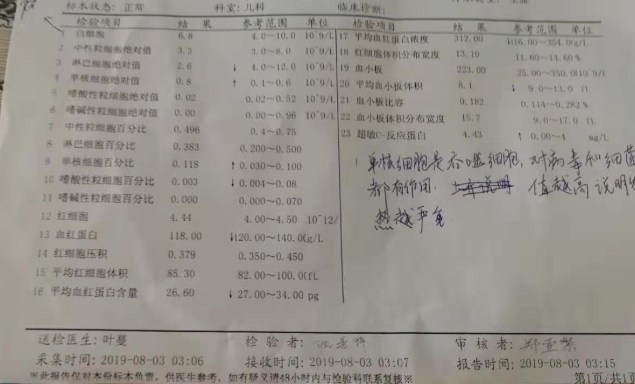 标本状态: 正常 科室: 儿科 临床诊断:
检验项目 结 果 参考范围 单位 检验项目 结 果 参考范围 单位
白细胞 6.8 4.0~10.0 10^9/L 17 平均血红蛋白浓度 312.00 316.00~354.0g/L
2 中性粒细胞绝对值 3.3 3.0~8.0 10^9/L 18 红细胞体积分布宽度 13.10 11.60~14.60 %
3 淋巴细胞绝对值 2.6 ↓ 4.0~12.0 10^9/L 19 血小板 223.00 10^9/L
4 单核细胞绝对值 0.8 ↑ 0.1~0.6 10^9/L 20 平均血小板体积 8.1 ↓ 9.0~13.0 fl
5 嗜酸性粒细胞绝对值 0.02 0.02~0.52 10^9/L 21 血小板比容 0.182 0.114~0.282 %
6 嗜碱性粒细胞绝对值 0.00 0.00~0.96 10^9/L 22 血小板体积分布宽度 15.7 9.0~17.0 fl
7 中性粒细胞百分比 0.496 0.4~0.75 23 超敏C-反应蛋白 4.43 ↑ 0.00~4 mg/L
8 淋巴细胞百分比 0.383 0.200~0.500
9 单核细胞百分比 0.118 ↑ 0.030~0.100
10 嗜酸性粒细胞百分比 0.003 ↓ 0.004~0.08
11 嗜碱性粒细胞百分比 0.000 0.000~0.070
12 红细胞 4.44 4.00~4.50 10^12/
13 血红蛋白 118.00 ↓120.00~140.0g/L
14 红细胞压积 0.379 0.350~0.450
15 平均红细胞体积 85.30 82.00~100.0fL
16 平均血红蛋白含量 26.60 ↓ 27.00~34.00 pg
单核细胞是吞噬细胞,对病毒和细菌
都有作用. 值越高说明
热越严重
送检医生: 叶蔓 检 验 者: 审 核 者:
采集时间: 2019-08-03 03:06 接收时间: 2019-08-03 03:07 报告时间: 2019-08-03 03:15
※此报告仅对本份标本负责,供医生参考,如有疑义请48小时内与检验科联系复核※ 第1页/共1页